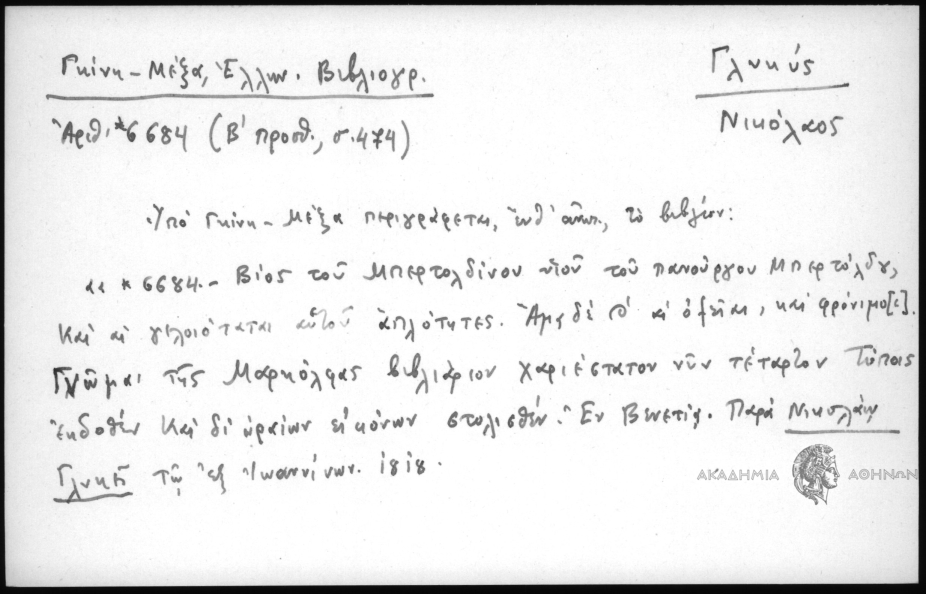 Γκίνη - Μέξα, Ἑλλην. Βιβλιογρ.
Γλυκύς
Νικόλαος
Ἀριθ. *6684 (Β' προσθ., σ. 474)
Ὑπό Γκίνη - Μέξα περιγράφεται, τό βιβλίον:
«*6684.- Βίος τοῦ Μπερτολδίνου υἱοῦ τοῦ πανούργου Μπερτόλδου,
Καί αἱ γελοιόταται αὐτοῦ ἁπλότητες. Ἅμα δέ αἱ ὀξεῖαι, καί φρόνιμο[ι].
Γνῶμαι τῆς Μαρκόλφας βιβλιάριον χαριέστατον νῦν τέταρτον Τύποις
ἐκδοθέν Καί δι' ὡραίων εἰκόνων στολισθέν. Ἐν Βενετίᾳ. Παρά Νικολάῳ
Γλυκεῖ τῷ ἐξ Ἰωαννίνων. 1818.
ΑΚΑΔΗΜΙΑ ΑΘΗΝΩΝ